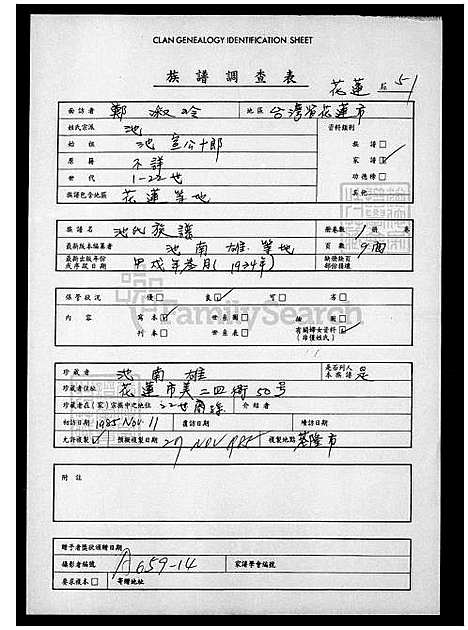 CLAN GENEALOGY IDENTIFICATION SHEET
族譜調查表
花蓮 51
面訪者 鄭淑玲 地區 台灣省花蓮市
姓氏宗派 池 資料類別
始祖 池 宣公十郎 族譜□
原籍 不詳 家譜☑
世代 1-22世 功德榜□
族譜包含地區 花蓮 等地 其他
族譜名 池氏族譜 冊卷數 1 冊 卷
最新版本編纂者 池南雄 等地 頁數 9面
最新出版年份或序跋日期 甲戌年 月(1934年) 缺冊缺頁部份損壞
FamilySearch
保管狀況 優□ 良☑ 可□ 劣□
內容 寫本☑ 世系圖□
刊本□ 世系表□ 有關婦女資料☑
(非僅姓氏)
珍藏者 池南雄 是否列入本族譜 是
珍藏者住址 花蓮市美二四街50号
珍藏者在(家)宗族中之地位 22世裔孫 介紹者
初訪日期 1985 Nov 11 復訪日期 續訪日期
允許複製☑ 預擬複製日期 27 NOV 1985 複製地點 基隆市
附註
贈予者獎狀頒贈日期
攝影者編號 A659-14 家譜學會編號
要求複本□ 寄贈地址